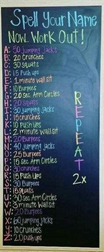 Spell Your Name
Now Work Out!
A: 50 jumping jacks
B: 20 crunches
C: 30 squats
D: 15 push ups
E: 1 minute wall sit
F: 10 burpees
G: 20 sec. Arm Circles
H: 20 squats
I: 30 jumping jacks
J: 15 crunches
K: 10 push ups
L: 2 minute wall sit
M: 20 burpees
N: 25 burpees
O: 40 jumping jacks
P: 15 Arm Circles
Q: 30 crunches
R: 15 push ups
S: 30 burpees
T: 15 squats
U: 30 sec. Arm Circles
V: 3 minute wall sit
W: 20 burpees
X: 60 jumping jacks
Y: 10 crunches
Z: 20 push ups
REPEAT
2x